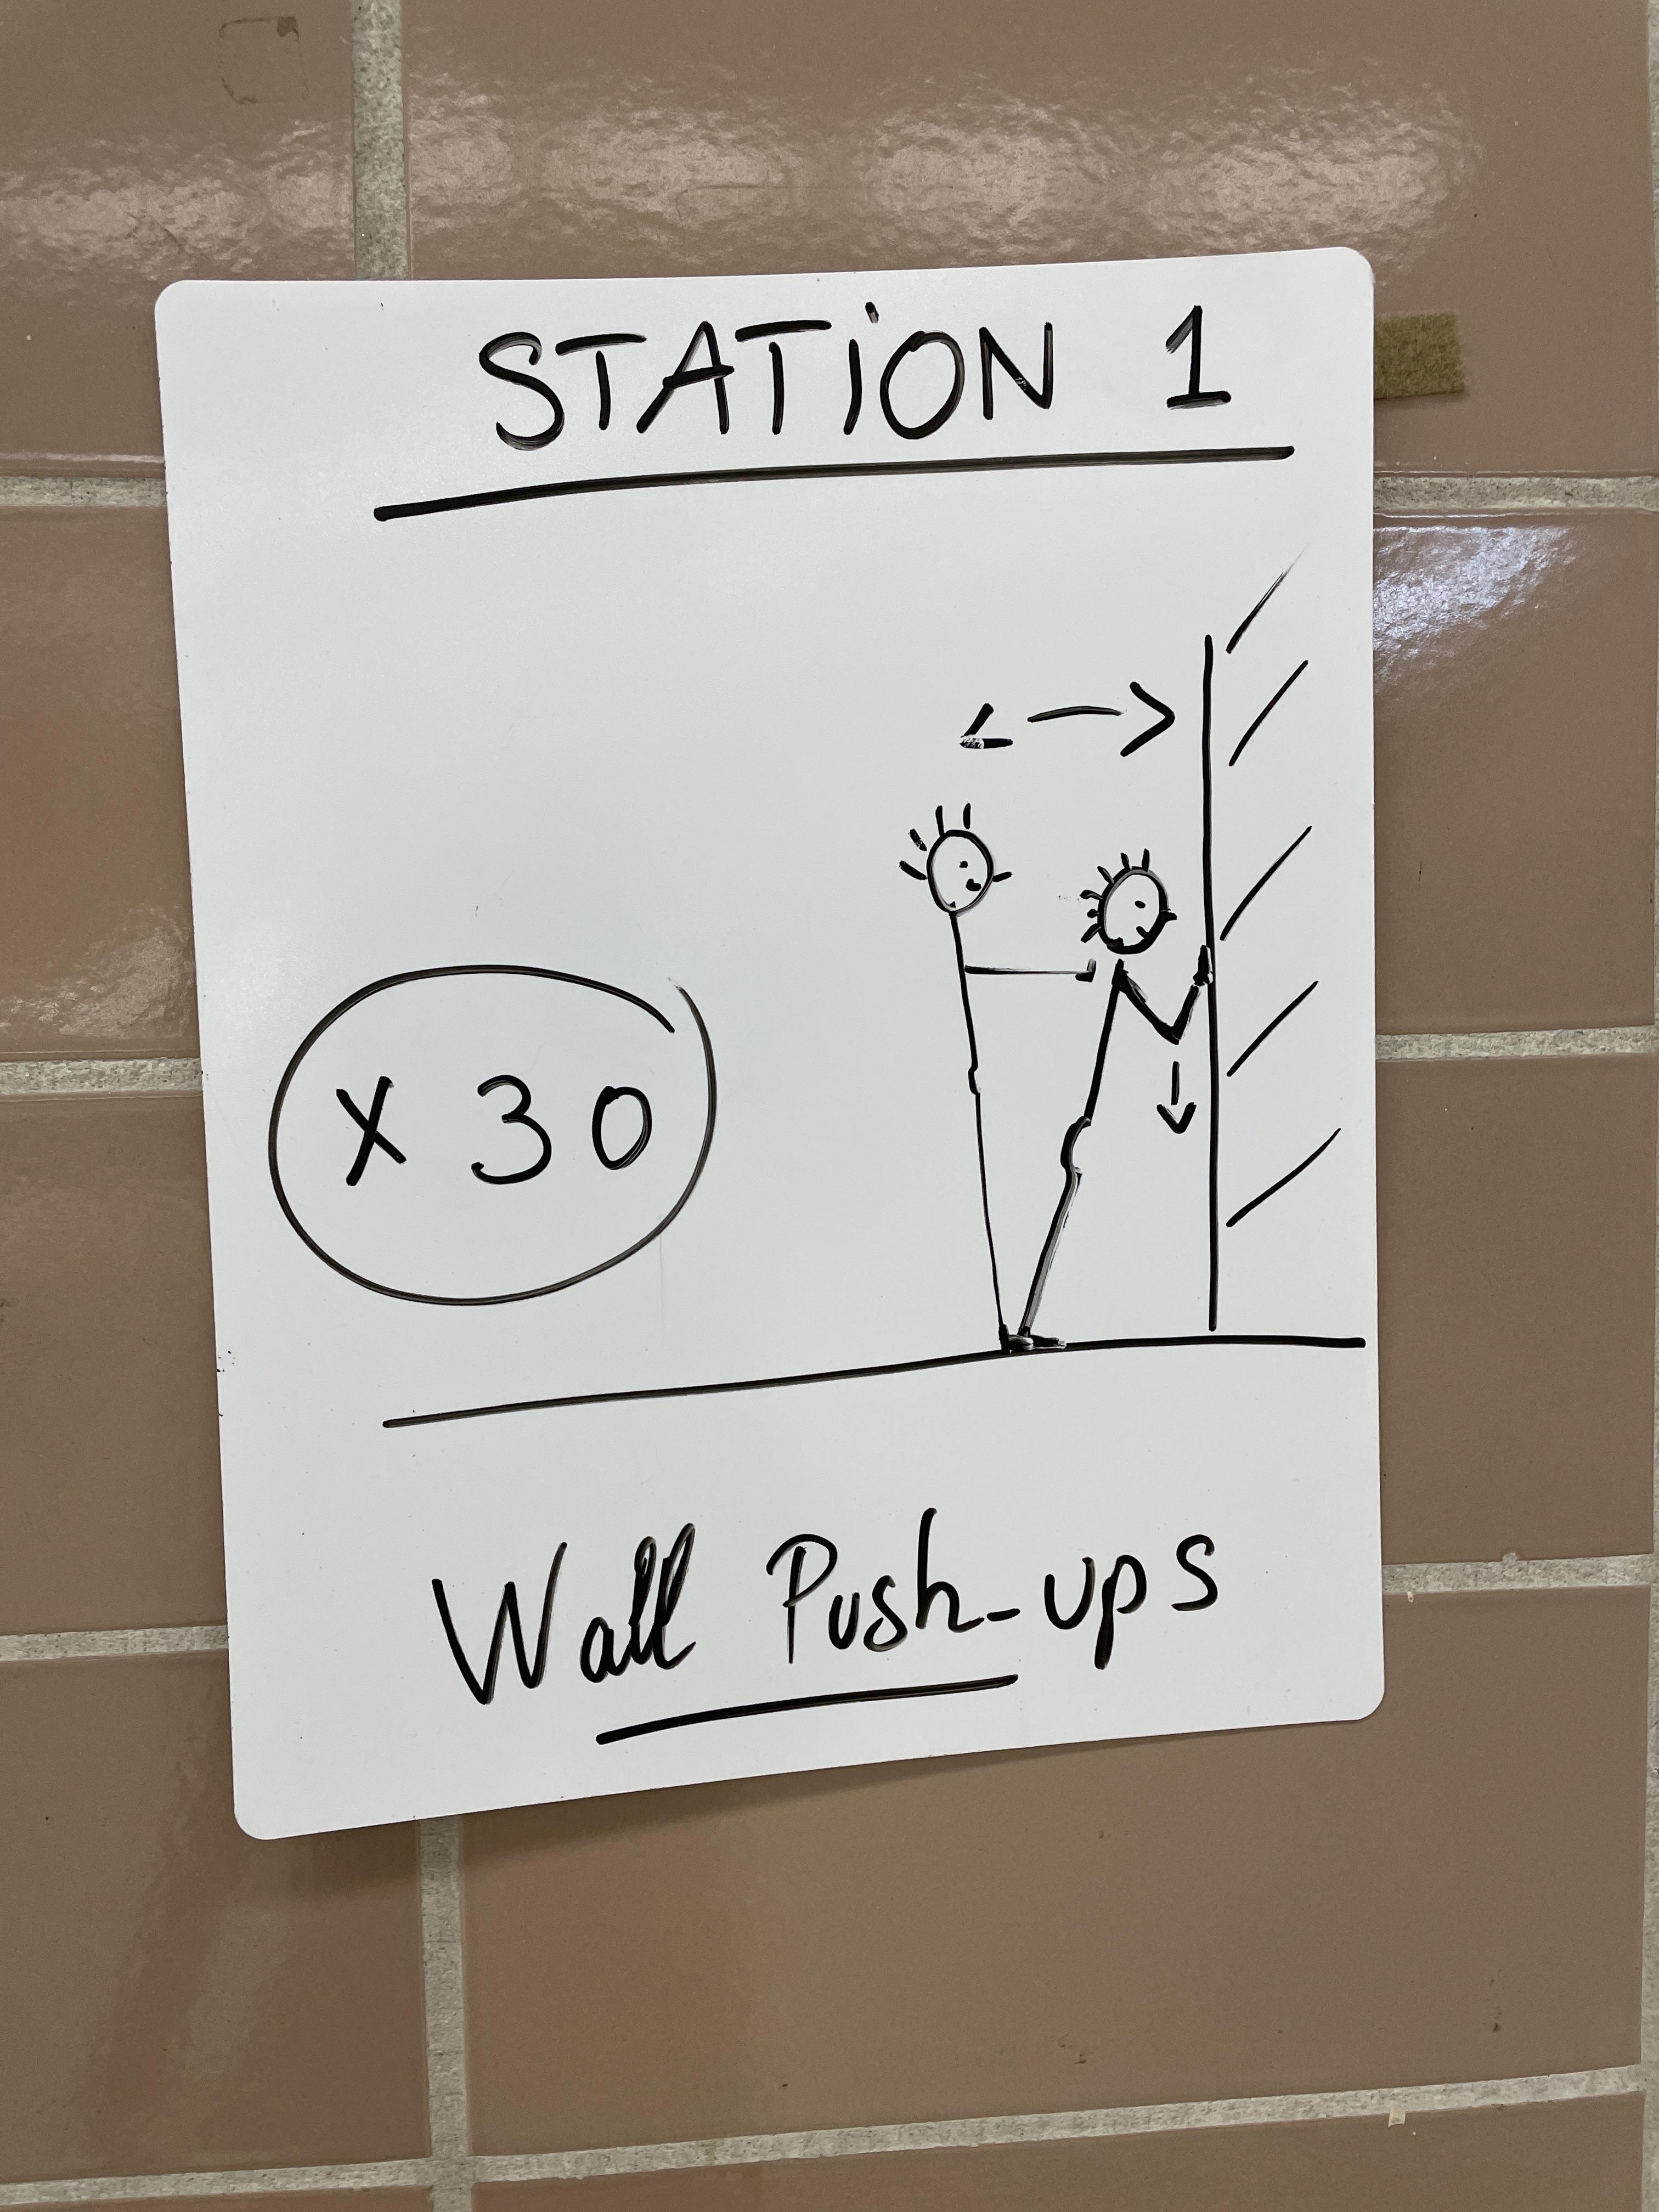 STATiON 1
x 30
Wall Push-ups